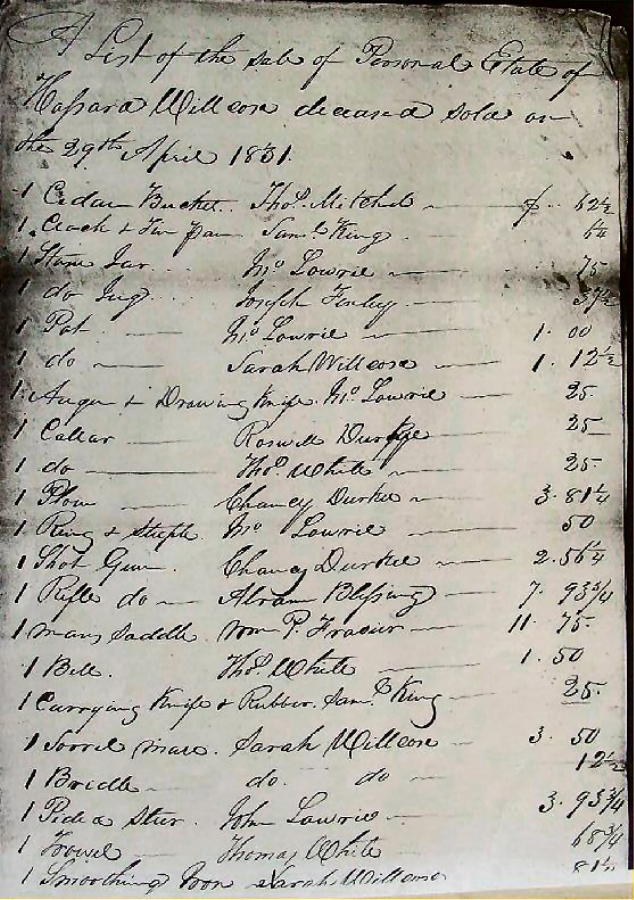 A List of the sale of Personal Estate of
Hassard Willcox deceased sold on
the 29th April 1831.
1 Cedar Bucket Thos. Mitchel $ 62½
1 Coach & Tin pan Saml. King 6¼
1 Stone Jar Jno Lowrie 75
1 do Jug Joseph Finley 37½
1 Pot Jno Lowrie 1.00
1 do Sarah Willcox 1.12½
1 Auger & Drawing Knife Jno. Lowrie 25
1 Collar Roswell Durkee 25
1 do Thos. White 25
1 Plow Chancy Durkee 3.81¼
1 Ring & Steeple Jno Lowrie 50
1 Shot Gun Chancy Durkee 2.56¼
1 Rifle do Abram Blessing 7.93¾
1 mans Saddle Wm P. Frasier 11.75
1 Bell Thos. White 1.50
1 Currying Knife & Rubber Saml. King 25
1 Sorrel mare Sarah Willcox 3.50
1 Bridle do do 12½
1 Pided Steer John Lowrie 3.93¾
1 Trowel Thomas White 68¾
1 Smoothing Iron Sarah Willcox